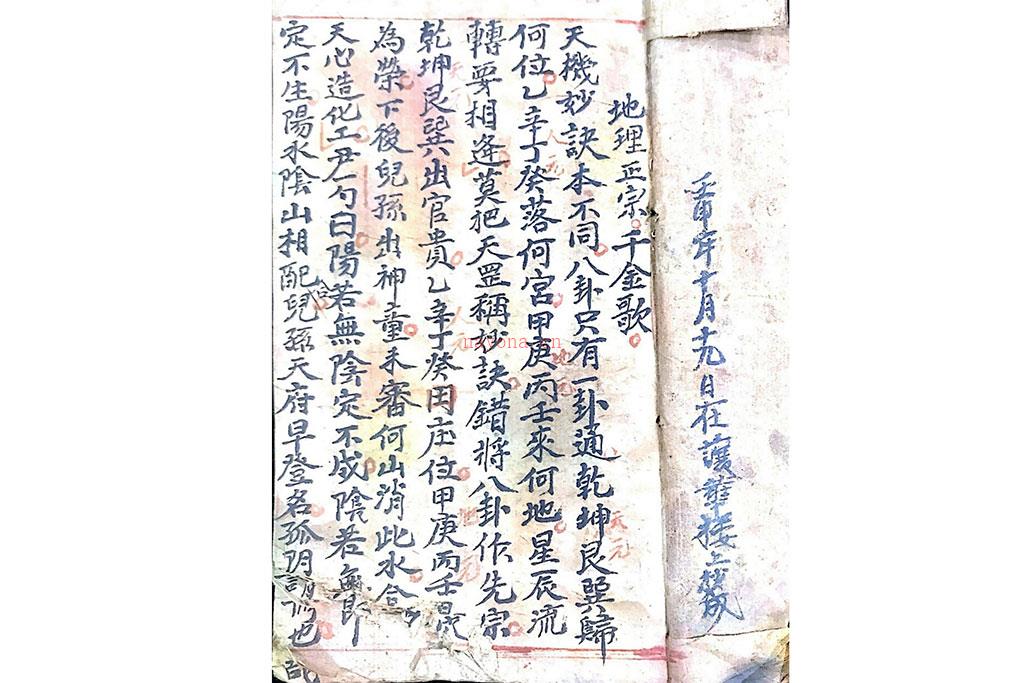 壬申年十月十九日在護華接上
地理正宗千金歌
天機妙訣本不同八卦只有一卦通乾坤艮巽歸
何位乙辛丁癸落何宮甲庚丙壬來何地星辰流
轉要相逢莫把天罡稱妙訣錯將八卦作先宗
乾坤艮巽出官貴乙辛丁癸田庄位甲庚丙壬
為榮下後兒孫出神童未審何山消此水合
天心造化工尹勺曰陽若無陰定不成陰若無
定不生陽水陰山相配合兒孫天府早登名孤
天元
人元
地元
天元
人元
地元
nayona.cn